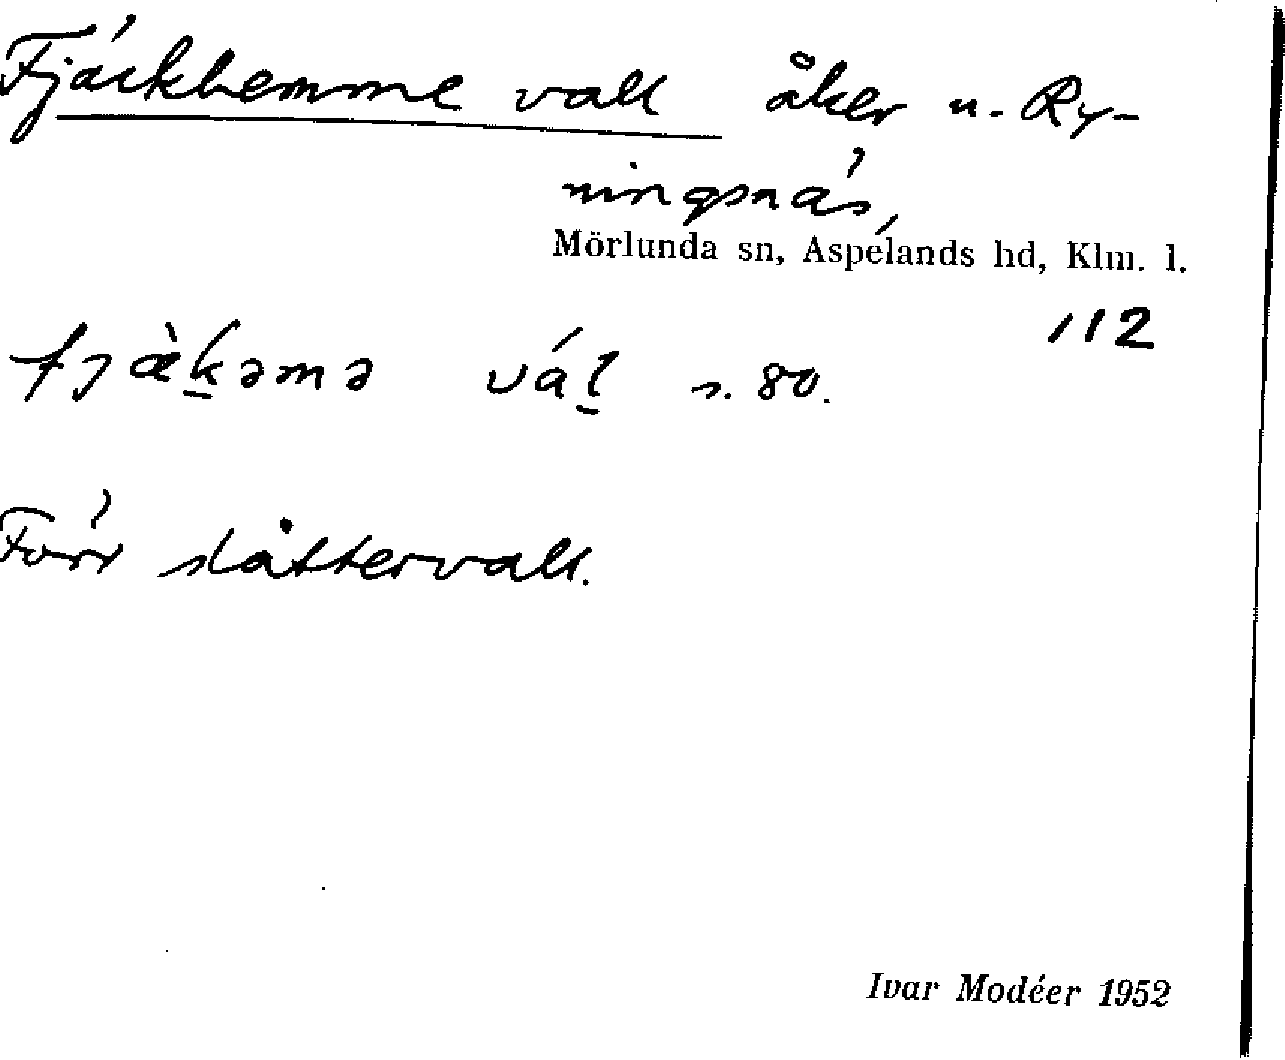 Fjäckhemme vall åker u. Ry-
ningsnäs,
Mörlunda sn, Aspelands hd, Klm. l.
112
fjæ̀k̠əmə vál̠ s. 80.
Förr slåttervall.
Ivar Modéer 1952